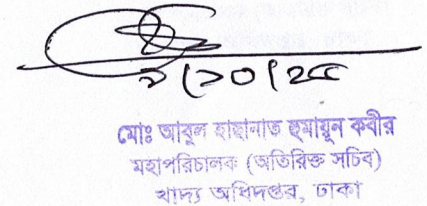 মোঃ আবুল হাছানাত হুমায়ুন কবীর
মহাপরিচালক (অতিরিক্ত সচিব)
খাদ্য অধিদপ্তর, ঢাকা